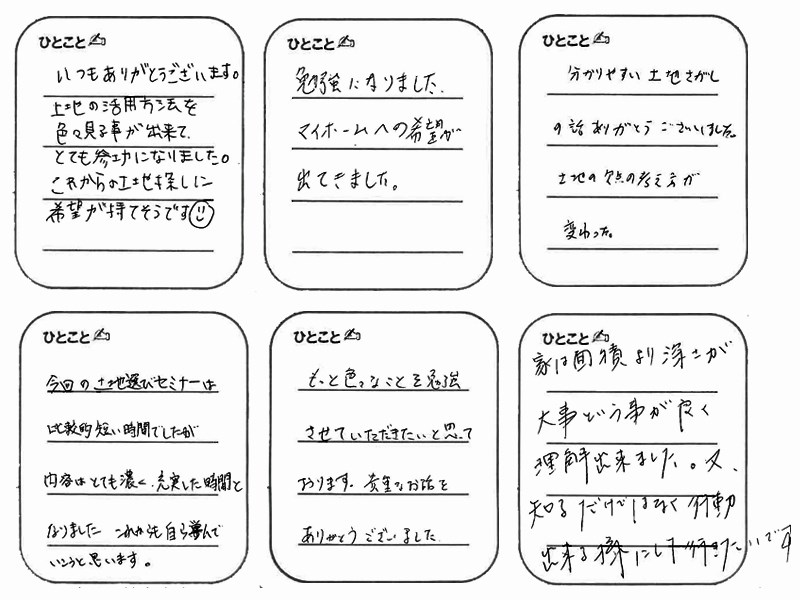 ひとこと
いつもありがとうございます。
土地の活用方法を
色々見る事が出来て、
とても参考になりました。
これからの土地探しに
希望が持てそうです
ひとこと
勉強になりました。
マイホームへの希望が
出てきました。
ひとこと
分かりやすい土地さがし
の話ありがとうございました。
土地の欠点の考え方が
変わった。
ひとこと
今回の土地選びセミナーは
比較的短い時間でしたが
内容はとても濃く、充実した時間と
なりました これからも自ら学んで
いこうと思います。
ひとこと
もっと色々なことを勉強
させていただきたいと思って
おります。貴重なお話を
ありがとうございました
ひとこと
家は面積より深さが
大事という事が良く
理解出来ました。又、
知るだけではなく行動
出来る様にして行きたいです